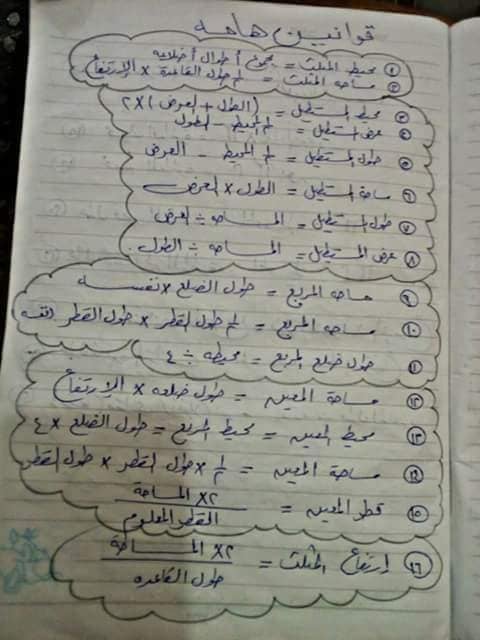 قوانين هامه
① محيط المثلث = مجموع أطوال أضلاعه
② مساحه المثلث = ½ طول القاعدة × الإرتفاع
③ محيط المستطيل = (الطول + العرض) × ٢
④ عرض المستطيل = ½ المحيط - الطول
⑤ طول المستطيل = ½ المحيط - العرض
⑥ مساحة المستطيل = الطول × العرض
⑦ طول المستطيل = المساحه ÷ العرض
⑧ عرض المستطيل = المساحه ÷ الطول
⑨ مساحه المربع = طول الضلع × نفسه
⑩ مساحه المربع = ½ طول القطر × طول القطر (نفسه)
⑪ طول ضلع المربع = محيطه ÷ ٤
⑫ مساحة المعين = طول ضلعه × الإرتفاع
⑬ محيط المعين = محيط المربع = طول الضلع × ٤
⑭ مساحة المعين = ½ × طول القطر × طول القطر
⑮ قطر المعين = ٢× المساحة
القطر المعلوم
⑯ إرتفاع المثلث = ٢× المساحة
طول القاعده